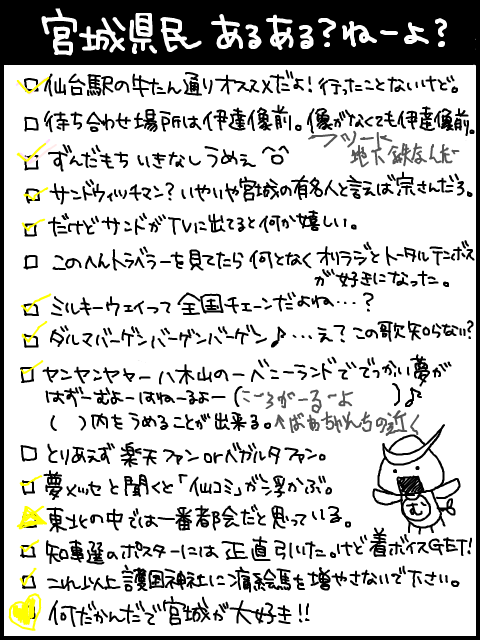 宮城県民 あるある？ねーよ？
仙台駅の牛たん通りオススメだよ！行ったことないけど。
待ち合わせ場所は伊達像前。像がなくても伊達像前。
フツーに
地下鉄なんだー
ずんだもち いきなし うめぇ
サンドウィッチマン？いやいや宮城の有名人と言えば宗さんだろ。
だけどサンドがTVに出てると何か嬉しい。
このへんトラベラーを見てたら何となくオリラジとトータルテンボス
が好きになった。
ミルキーウェイって全国チェーンだよね…？
ダルマバーゲンバーゲンバーゲン♪…え？この歌知らない？
ヤンヤンヤャー八木山のーベニーランドででっかい夢が
はずーむよーはねーるよー（ころがーるーよ ）♪
（ ）内をうめることが出来る。↑ばぁちゃんちの近く
とりあえず楽天ファンorベガルタファン。
夢メッセと聞くと「仙コミ」が浮かぶ。
東北の中では一番都会だと思っている。
知事選のポスターには正直引いた。けど着ボイスGET！
これ以上護国神社に痛絵馬を増やさないで下さい。
何だかんだで宮城が大好き！！
む